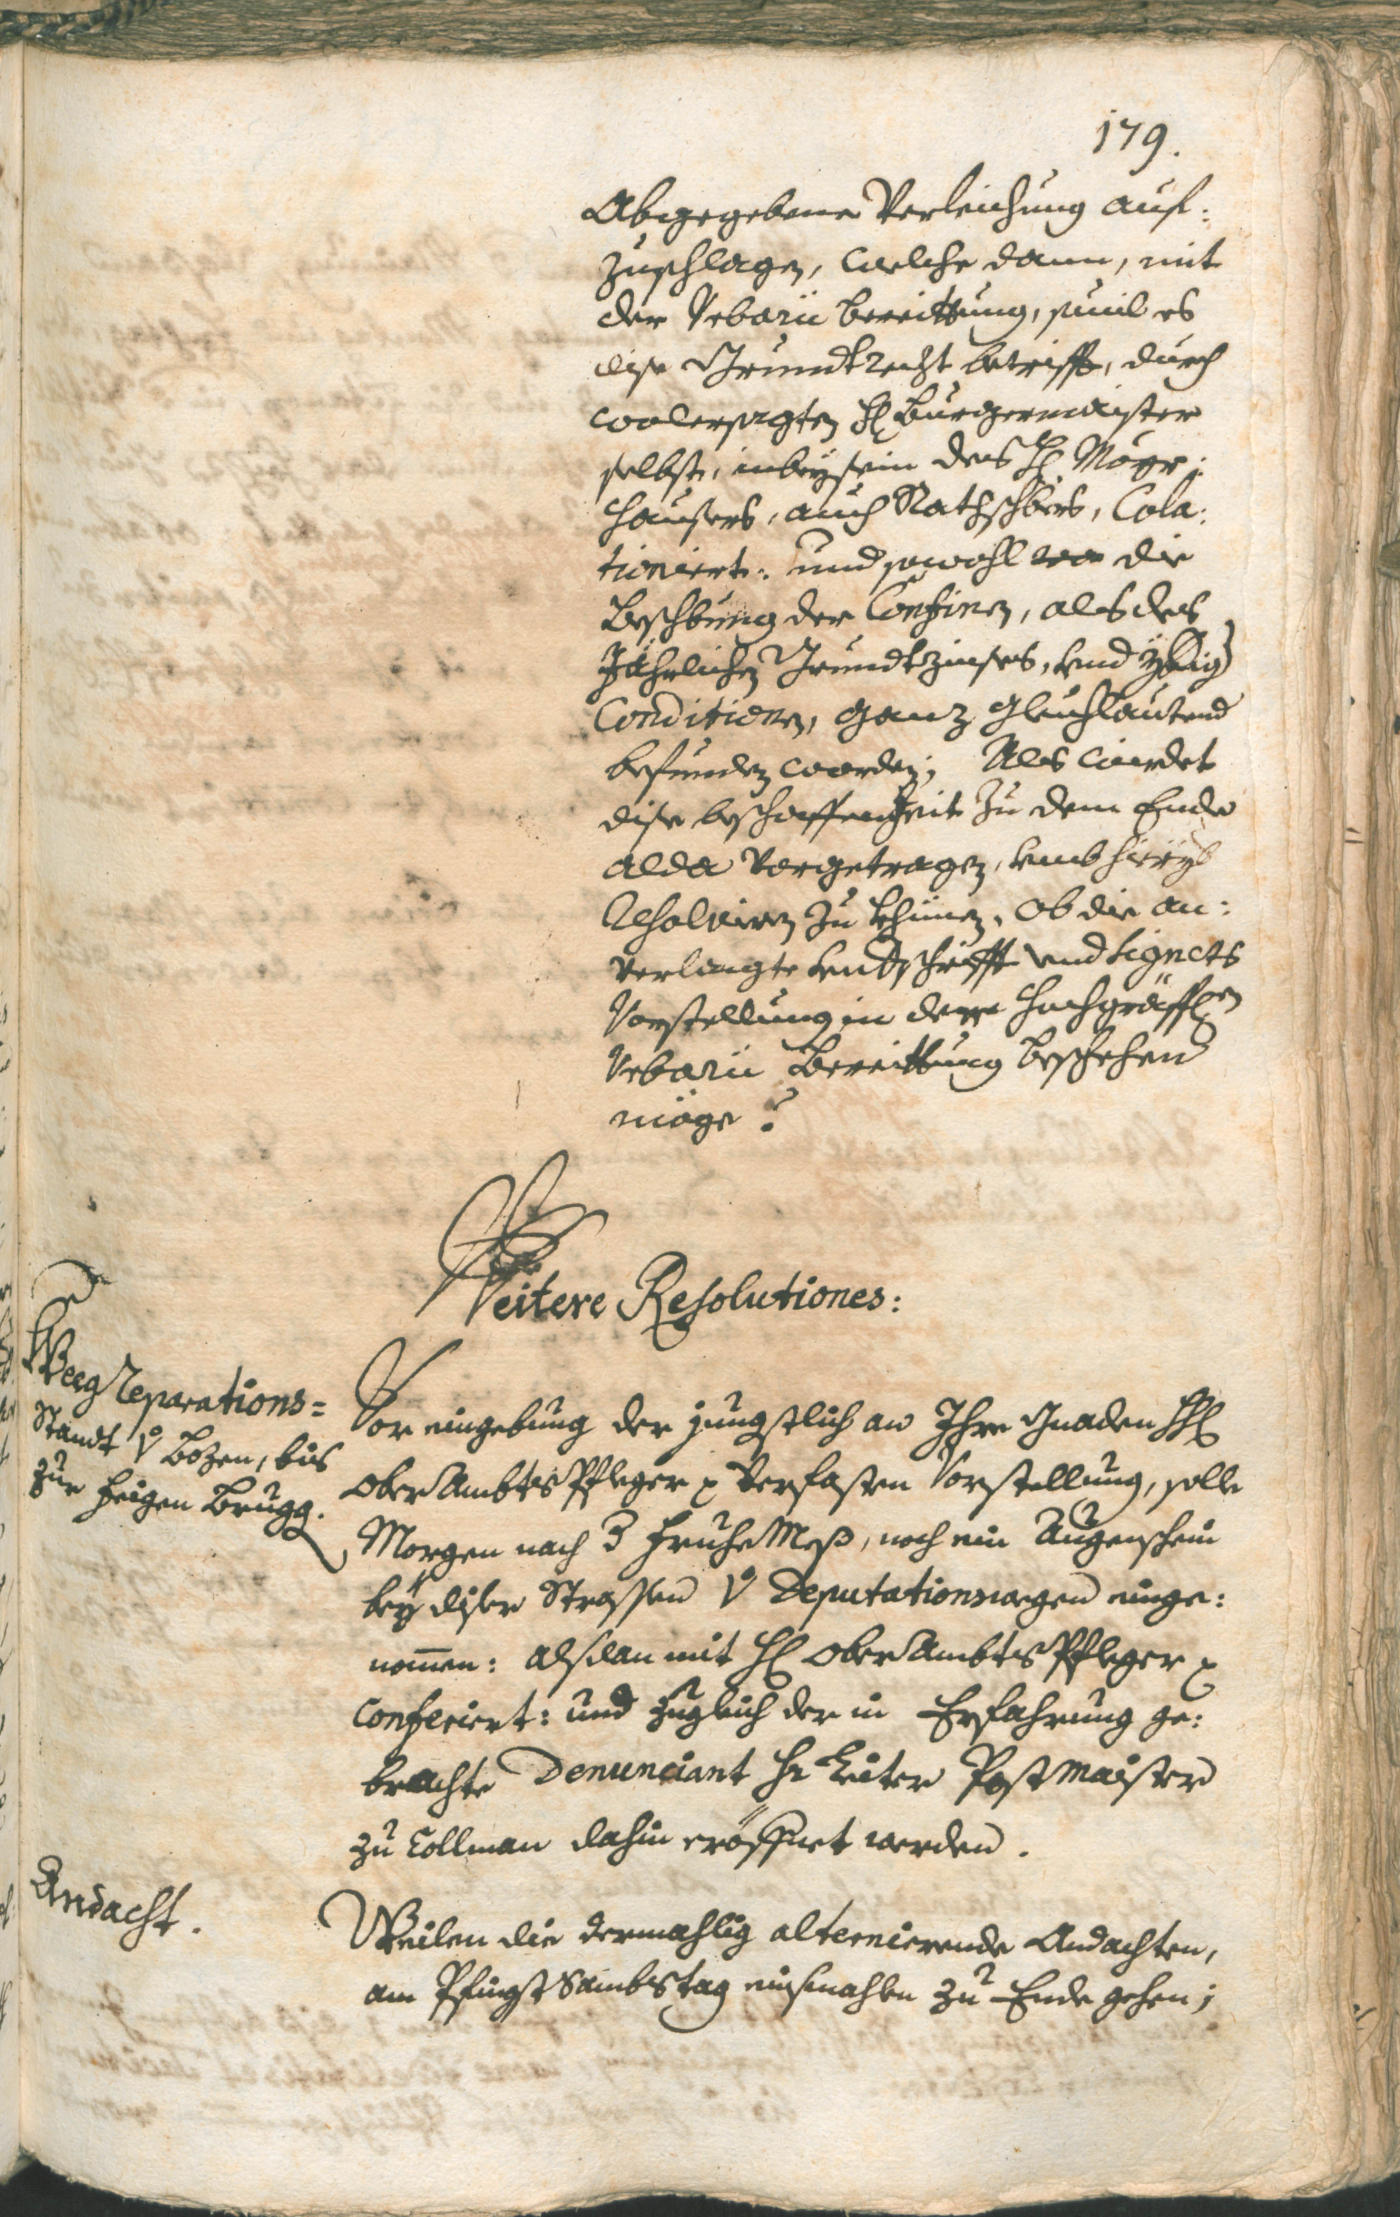 179.
Abgegebene Verleichung auf:
zuschlagen, welche dann, mit
der Vrbarii bereittung, sovil es
dise Grundtrecht betrifft, durch
wolersagten H Burgermaister
selbst, inbeysein des H Mayr:
hausers, auch Rathschbers, Cola:
tioniert: und sowohl die
Beschbung der Confinen, als des
Jährlichen Grundtzinses, und ybrig
Conditionen, ganz gleichlautend
befunden worden; Als wirdet
dise beschaffenheit zu dem Ende
alda vorgetragen, umb hieryb
Resolvieren zu khünen, ob die an:
verlangte undschrifft und Signets
Vorstellung in der Hochgräffl
Vrbarii Bereittung beschehen
möge?
Weitere Resolutiones:
Weeg Reparations=
Standt v Bozen, bis
zur feigen Brugg.
Vor eingebung der jungstlich an Ihre Gnaden HH
OberAmbts Pfleger verfasten Vorstellung, solle
Morgen nach 3 fruhe Mess, noch ein Augenschein
bey diser Strassen v Deputationswegen einge:
nommen: alsdan mit H OberAmbts Pfleger
conferiert: und zugleich der in Erfahrung ge:
brachte Denunciant Hr Postmaister
zu Collman dahin eröffnet werden.
Andacht.
Weilen die dermahlig alternierende Andachten,
am PfingstSambstag einsmahlen zu Ende gehen;